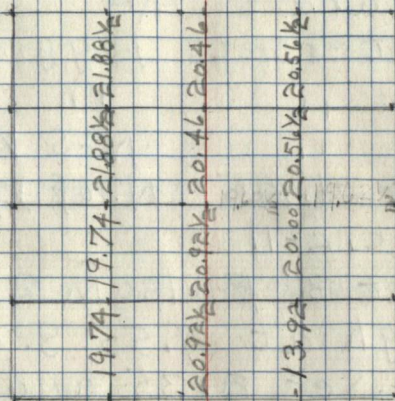 19.74 - 19.74 - 21.88½ - 21.88½
20.92½ 20.92½ 20.46 20.46
13.92 20.00 20.56½ 20.56½